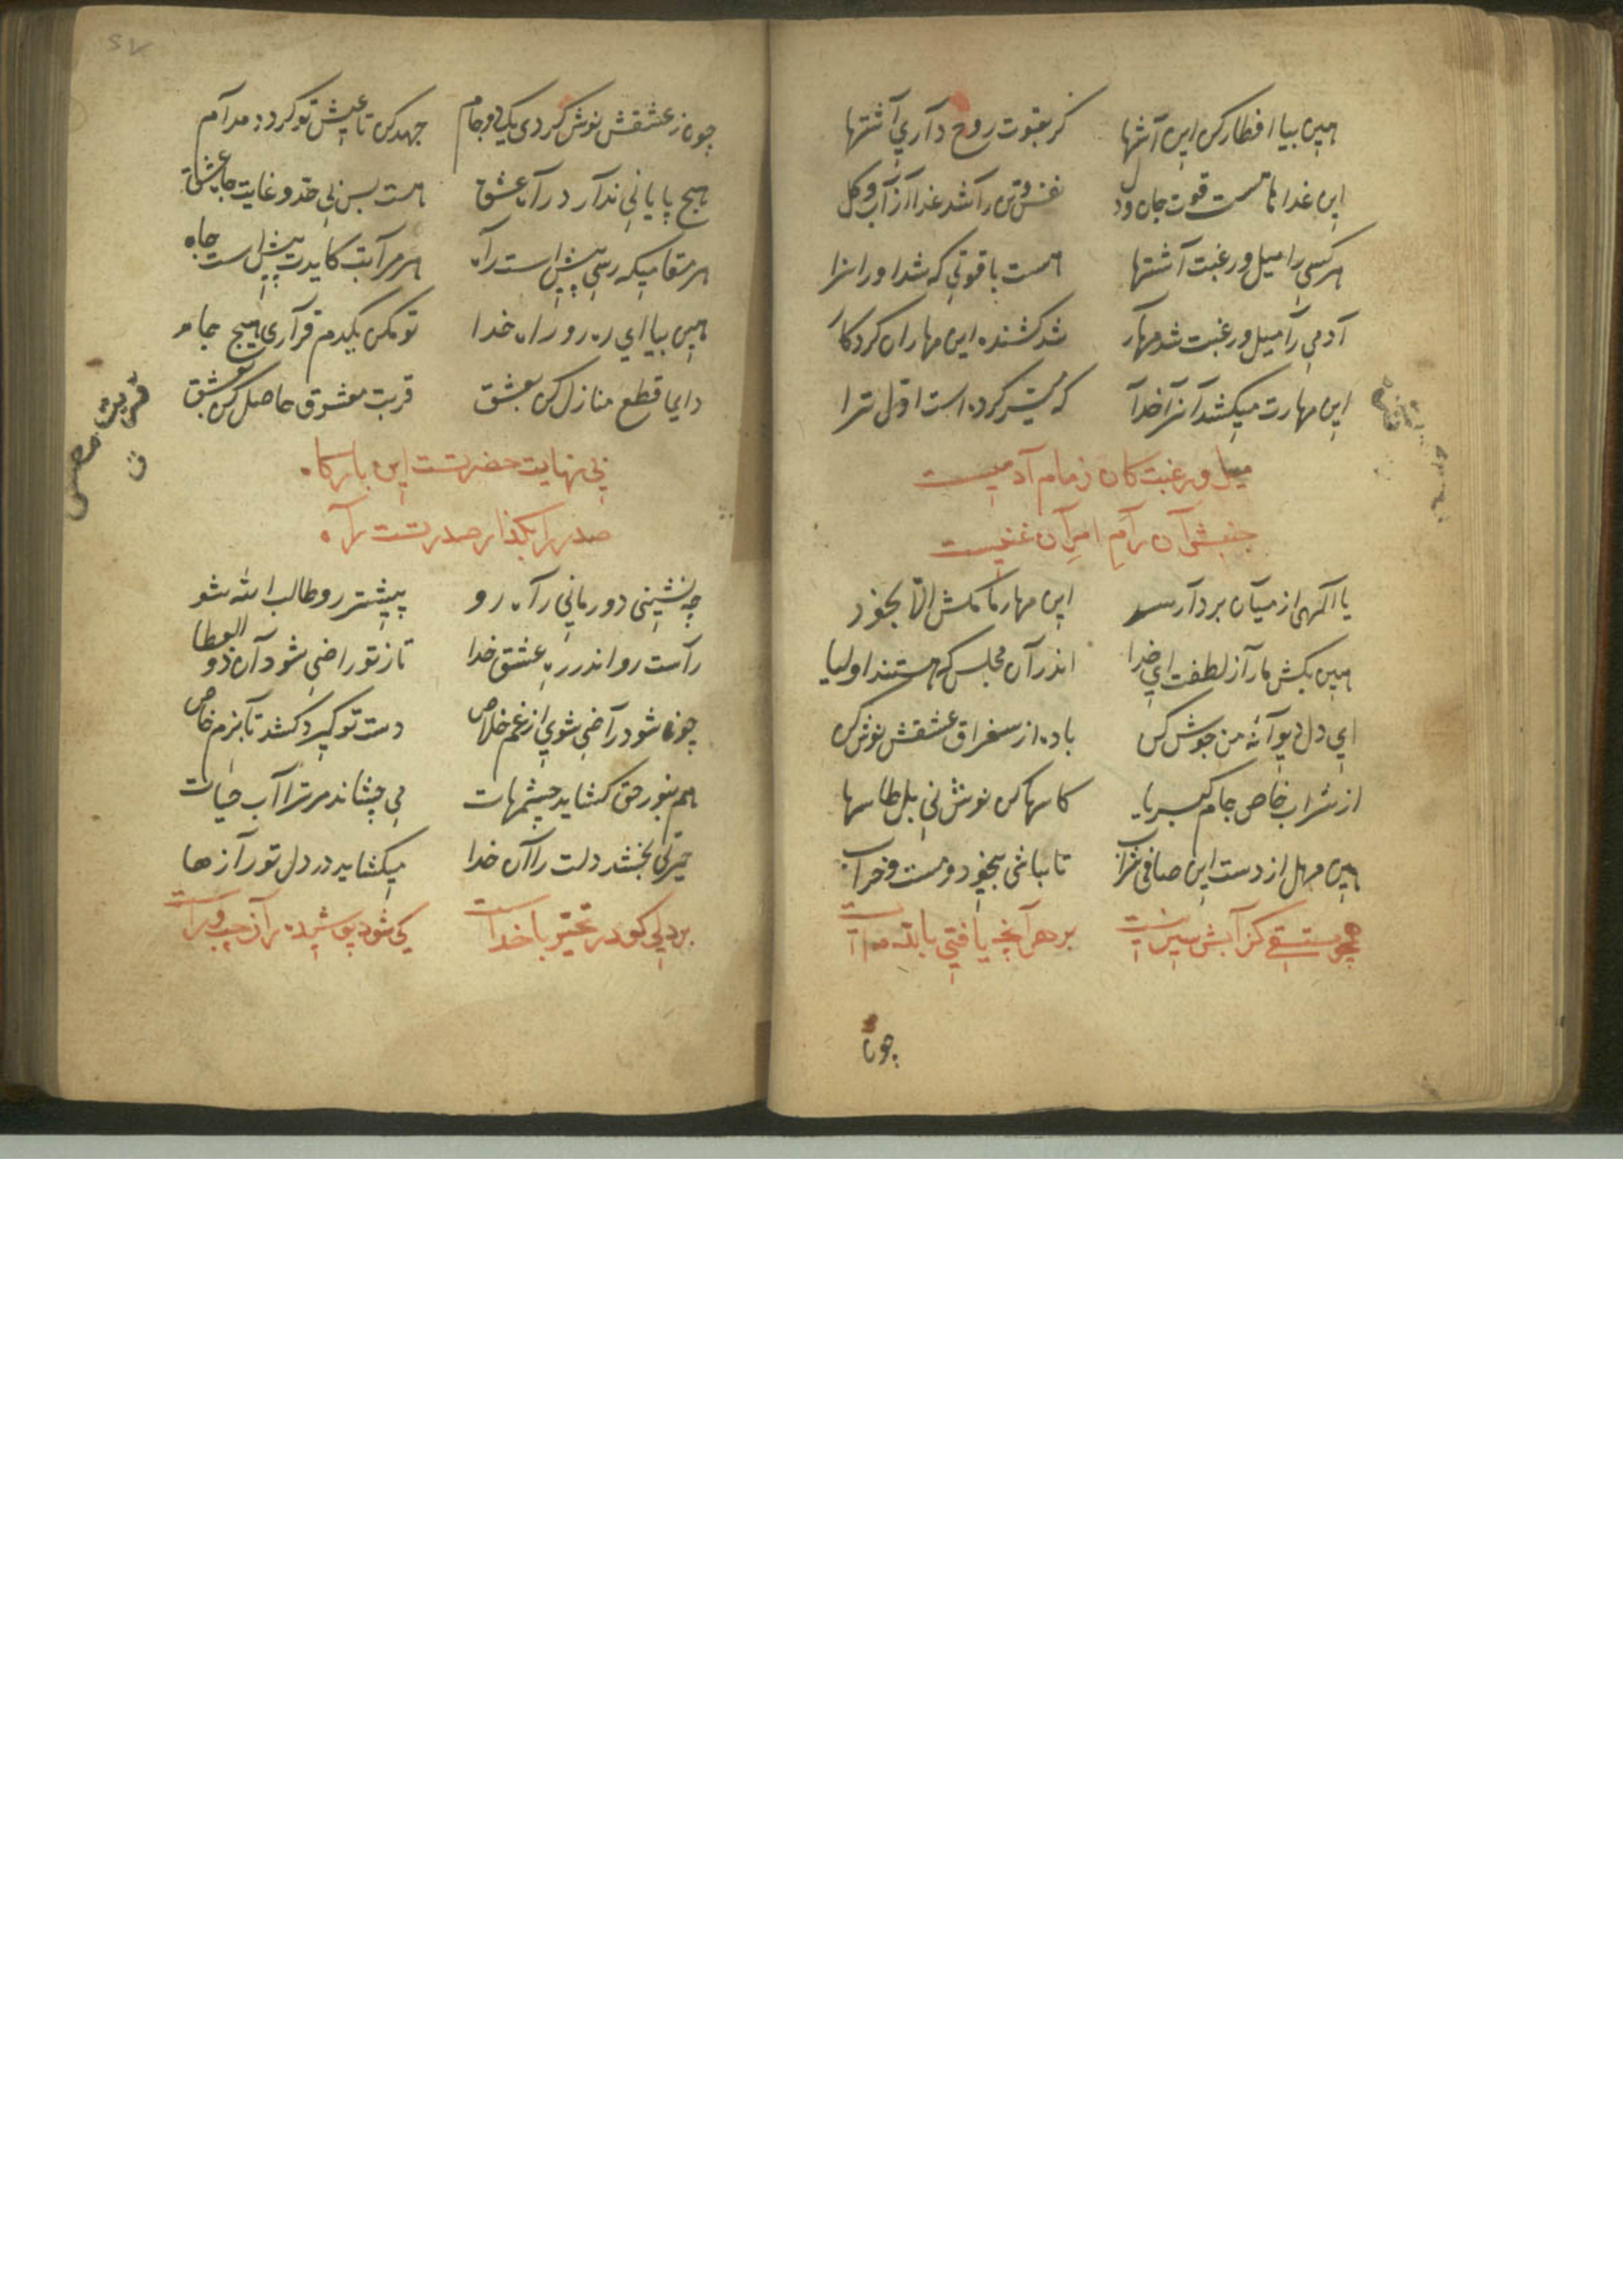 هین بیا افطار کن این آشها گر بقوت روح داری آشتها
این غداها هست قوت جان ودل نفس وتن را شد غدا از آب وگل
هر کسی را میل ورغبت آشتها هست با قوتی که شد اورا سزا
آدمی را میل ورغبت شد مهار شد کشنده این مهاران کردکار
این مهارت میکشد آنرا خدا که میسر کرده است اول ترا
میل ورغبت کان زمام آدمیست
جنبش آن رام امر آن غنیست
یا الهی از میان بردار سد این مهار ما مکش الا بخود
هین بکش مارا از لطفت ای خدا اندر آن مجلس که هستند اولیا
ای دل دیوانه من جوش کن باده از سغراق عشقش نوش کن
از شراب خاص جام کبریا کاسها کن نوش نی بل طاسها
هین مهل از دست این صافی شراب تا بباشی بیخود ومست وخراب
همچو مستسقی کز آبش سیر نیست بر هر آنچه یافتی بالله مه ایست
چون
چون ز عشقش نوش کردی یک دو جام جهد کن تا عیش تو کردد مدام
هیچ پایانی ندارد راه عشق هست بس بی حد وغایت جاه عشق
هر مقامیکه رسی پیش است راه هر مراتب کایدت پیش است جاه
هین بیا ای ره رو راه خدا تو مکن یکدم قراری هیچ جا
دایما قطع منازل کن بعشق قربت معشوق حاصل کن تو بعشق
بی نهایت حضرتست این بارکاه
صدر را بکذار صدر تست راه
چه نشینی دور مانی راه رو پیشتر رو طالب الله شو
راست رو اندر ره عشق خدا تا ز تو راضی شود آن ذو العطا
چون شود راضی شوی از غم خلاص دست تو کیرد کشد تا بزم خاص
هم بنور حق کشاید چشمهات می چشاند مر ترا آب حیات
حیرتی بخشد دلت را آن خدا میکشاید در دل تو رازها
بر دلی کو در تحیر با خداست کی شود پوشیده راز چپ وراست